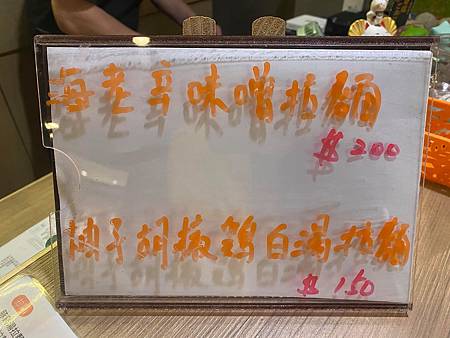 海老辛味噌拉麵
$200
柚子胡椒鶏白湯拉麵
$150